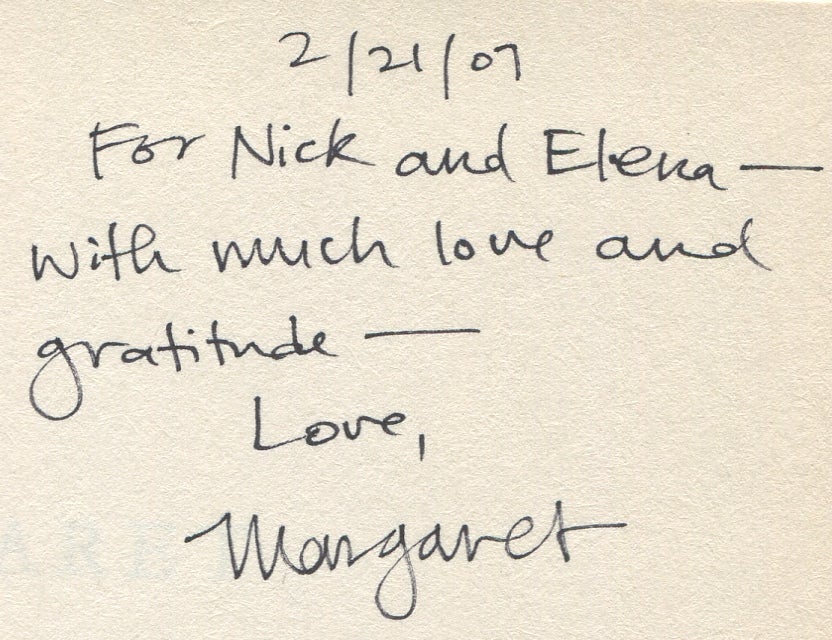 2/21/07
For Nick and Elena —
With much love and
gratitude —
Love,
Margaret